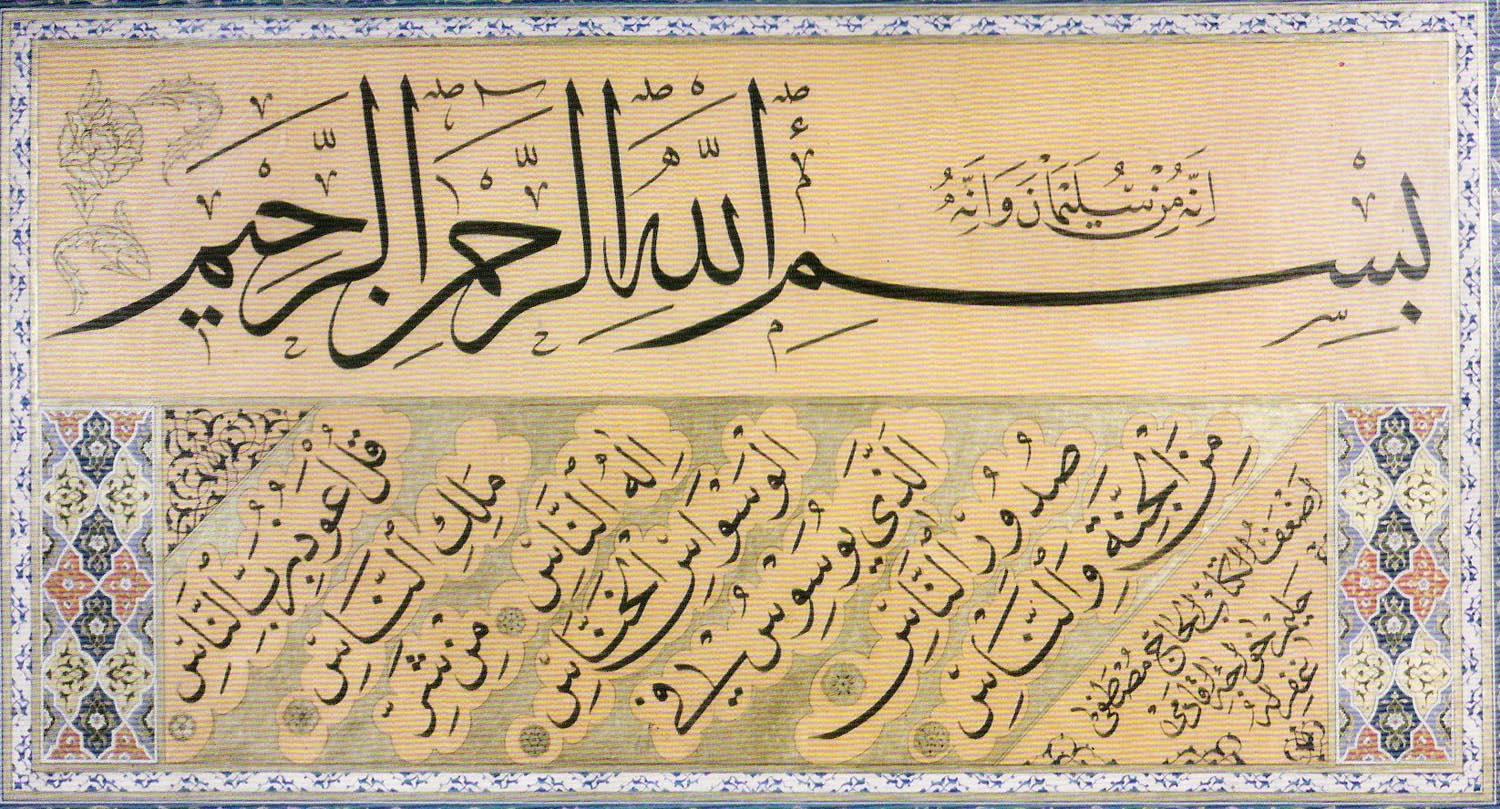 اِنَّهُ مِنْ سُلَيْمَانَ وَاِنَّهُ
بِسْمِ اللّٰهِ الرَّحْمٰنِ الرَّحِيْمِ
قُلْ اَعُوذُ بِرَبِّ النَّاسِ
مَلِكِ النَّاسِ
اِلٰهِ النَّاسِ مِنْ شَرِّ
الْوَسْوَاسِ الْخَنَّاسِ
الَّذِي يُوَسْوِسُ فِي
صُدُورِ النَّاسِ
مِنَ الْجِنَّةِ وَالنَّاسِ
اضعف الكتاب الحاج مصطفى
حليم
غفر لهم